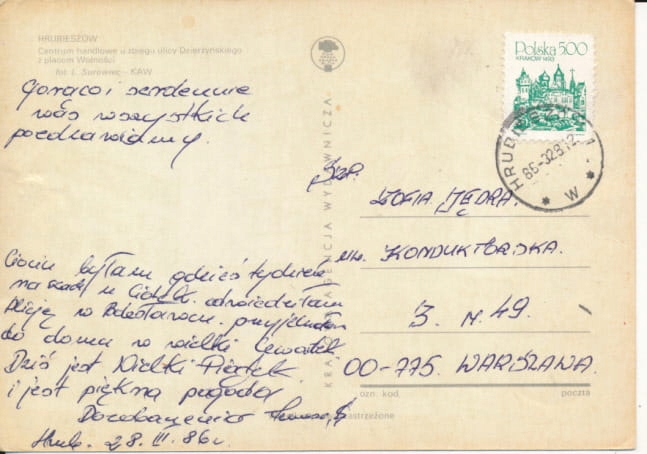 HRUBIESZÓW
Centrum handlowe u zbiegu ulicy Dzierżyńskiego
z placem Wolności
fot. L. Surowiec – KAW
Polska 5.00
KRAKÓW 1493
HRUBIESZÓW 1
W
Gorąco i serdecznie
was wszystkich
pozdrawiamy.
Ciociu byłam gdzieś tydzień
odwiedziłam
do domu w wielki czwartek
Dziś jest Wielki Piątek
i jest piękna pogoda
Do zobaczenia
Hrub. 28. III. 86 r.
KRAJOWA AGENCJA WYDAWNICZA
Szp.
ZOFIA JĘDRA.
ul. KONDUKTORSKA.
3. m. 49.
00-775. WARSZAWA.
ozn. kod
poczta
zastrzeżone